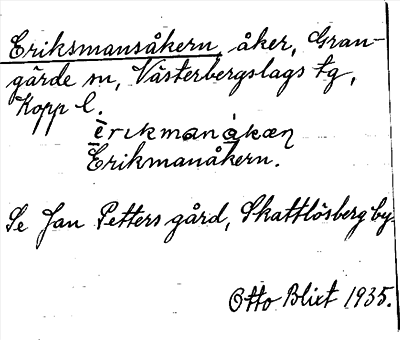 Eriksmansåkern, åker, Gran-
gärde sn, Västerbergslags tg,
Kopp l.
èrikmanàkæn
Erikmanåkern.
Se Jan Petters gård, Skattlösberg by
Otto Blixt 1935.